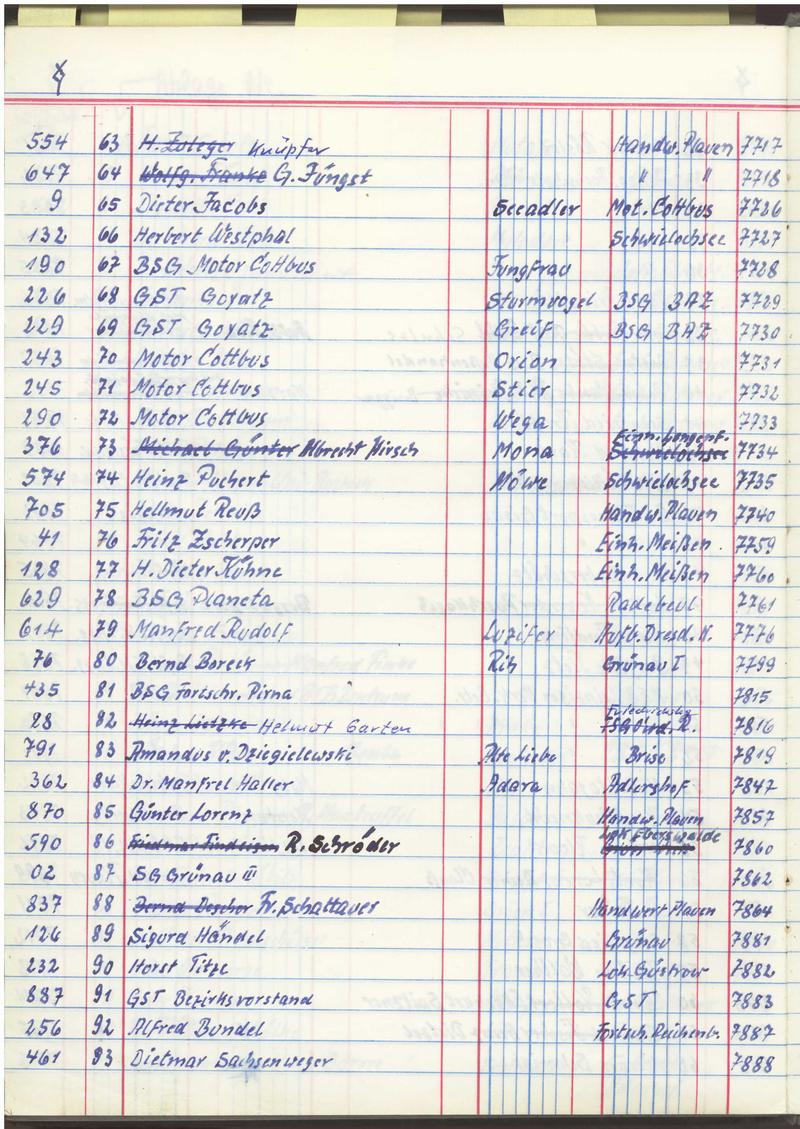 554 63 H. Zoleger Knüpfer Handw. Plauen 7717
647 64 Wolfg. Franke G. Jüngst " " 7718
9 65 Dieter Jacobs Seeadler Mot. Cottbus 7726
132 66 Herbert Westphal Schwielochsee 7727
190 67 BSG Motor Cottbus Jungfrau 7728
226 68 GST Goyatz Sturmvogel BSG BAZ 7729
229 69 GST Goyatz Greif BSG BAZ 7730
243 70 Motor Cottbus Orion 7731
245 71 Motor Cottbus Stier 7732
290 72 Motor Cottbus Wega 7733
376 73 Michael Günter Albrecht Hirsch Mona Schwielochsee Einh. 7734
574 74 Heinz Puchert Möwe Schwielochsee 7735
705 75 Hellmut Reuß Handw. Plauen 7740
41 76 Fritz Zscherper Einh. Meißen 7759
128 77 H. Dieter Kühne Einh. Meißen 7760
629 78 BSG Planeta Radebeul 7761
614 79 Manfred Rudolf Luzifer Aufb. Dresd. M. 7776
76 80 Bernd Boreck Rih Grünau I 7799
435 81 BSG Fortschr. Pirna 7815
28 82 Heinz Lietzke Helmut Garten R. 7816
791 83 Amandus v. Dziegielewski Alte Liebe Brise 7819
362 84 Dr. Manfred Haller Adara Adlershof 7847
870 85 Günter Lorenz Handw. Plauen 7857
590 86 Friedmar Findeisen R. Schröder Lok Eberswalde 7860
02 87 SG Grünau III 7862
837 88 Bernd Descher Fr. Schattauer Handwerk Plauen 7864
126 89 Sigurd Händel Grünau 7881
232 90 Horst Titze Lok. Güstrow 7882
887 91 GST Bezirksvorstand GST 7883
256 92 Alfred Bundel Fortsch. Reichenb. 7887
461 93 Dietmar Sachsenweger 7888